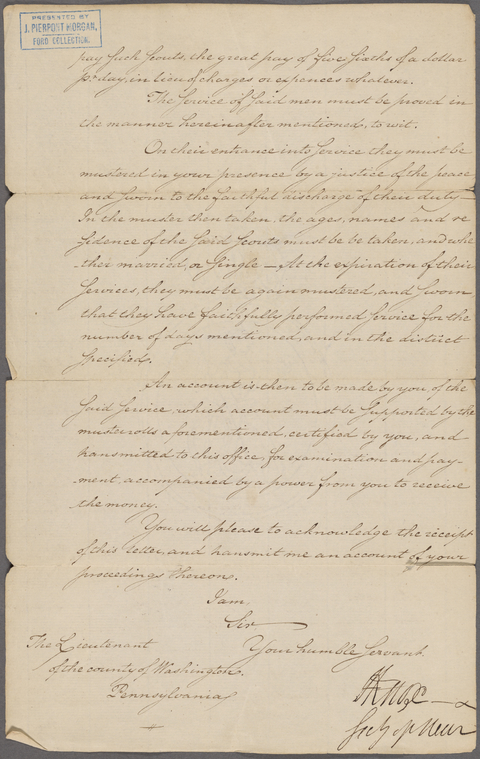 PRESENTED BY
J. PIERPONT MORGAN,
FORD COLLECTION.
pay such Scouts, the great pay of five sixths of a dollar
pr. day, in lieu of charges or expences whatever.
The service of said men must be proved in
the manner hereinafter mentioned, to wit.
On their entrance into service they must be
mustered in your presence by a justice of the peace
and sworn to the faithful discharge of their duty —
In the muster then taken, the ages, names and re
sidence of the said Scouts must be be taken, and whe
ther married, or single — At the expiration of their
services, they must be again mustered, and sworn
that they have faithfully performed service for the
number of days mentioned, and in the district
specified.
An account is then to be made by you of the
said service, which account must be supported by the
musterolls aforementioned, certified by you, and
transmitted to this office, for examination and pay-
ment, accompanied by a power from you to receive
the money.
You will please to acknowledge the receipt
of this letter, and transmit me an account of your
proceedings thereon.
I am,
Sir
Your humble Servant
The Lieutenant
of the county of Washington.
Pennsylvania
HKnox
Secy of War